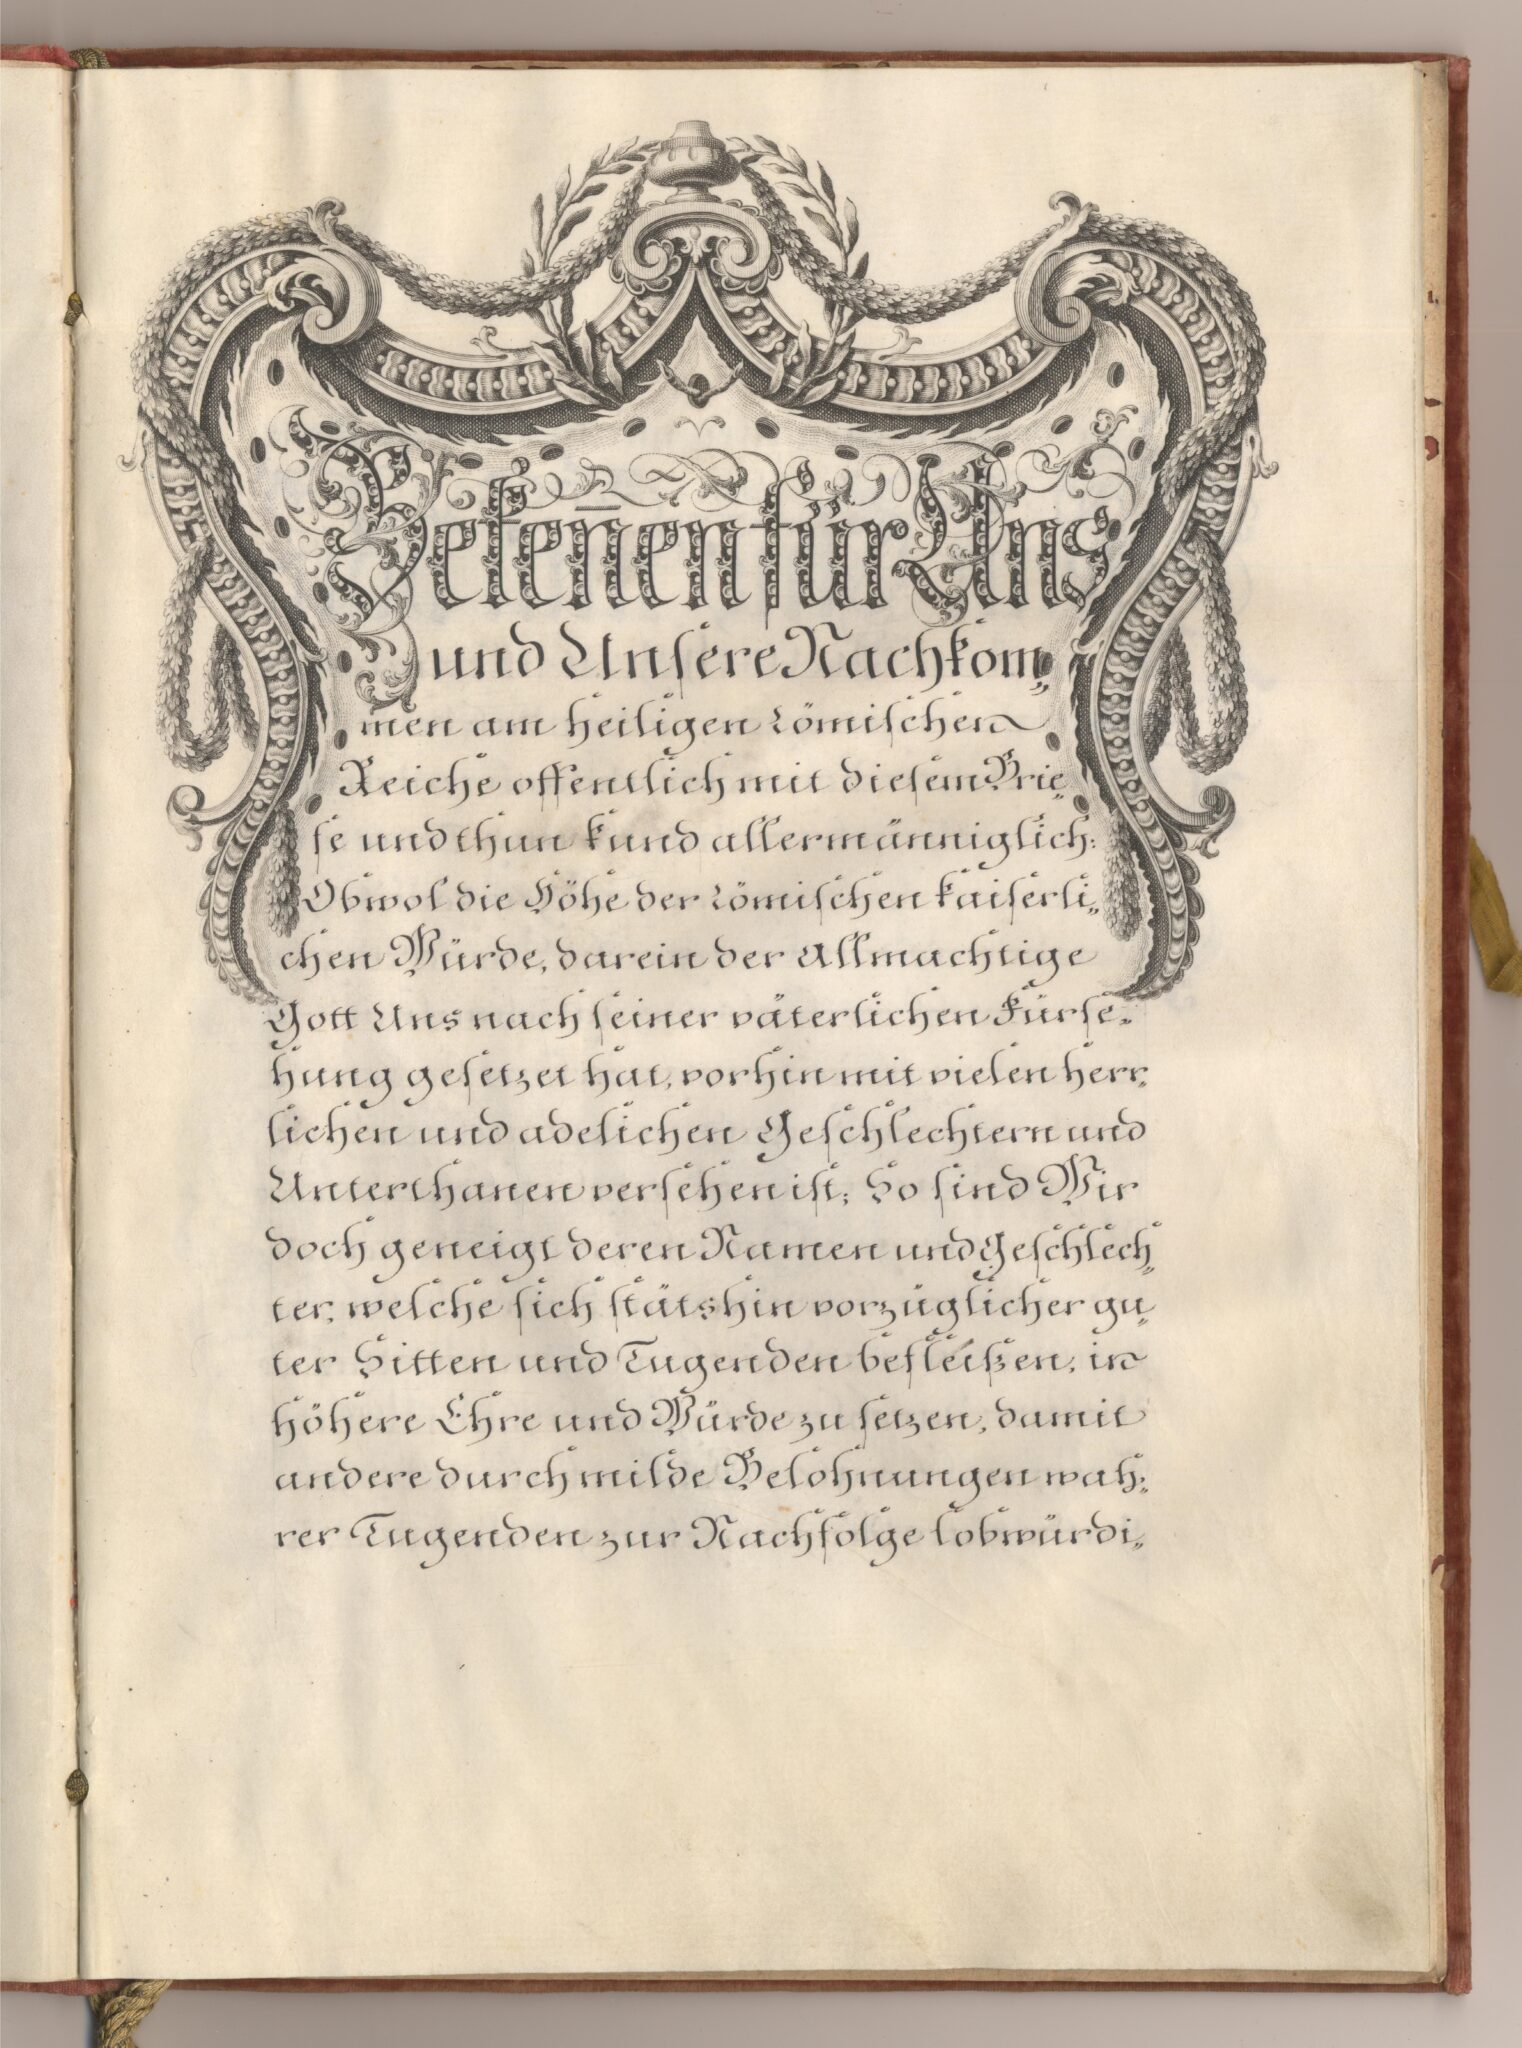 Bekeñen für Uns
und Unsere Nachkom„
men am heiligen Römischen
Reiche offentlich mit diesem Brie„
fe und thun kund allermänniglich:
Obwol die Höhe der Römischen kaiserli„
chen Würde, darein der Allmachtige
Gott Uns nach seiner väterlichen Fürse„
hung gesetzet hat, vorhin mit vielen herr„
lichen und adelichen Geschlechtern und
Unterthanen versehen ist; So sind Wir
doch geneigt deren Namen und Geschlech„
ter, welche sich stätshin vorzüglicher gu„
ter Sitten und Tugenden befleißen, in
höhere Ehre und Würde zu setzen, damit
andere durch milde Belohnungen wah„
rer Tugenden zur Nachfolge lobwürdi„